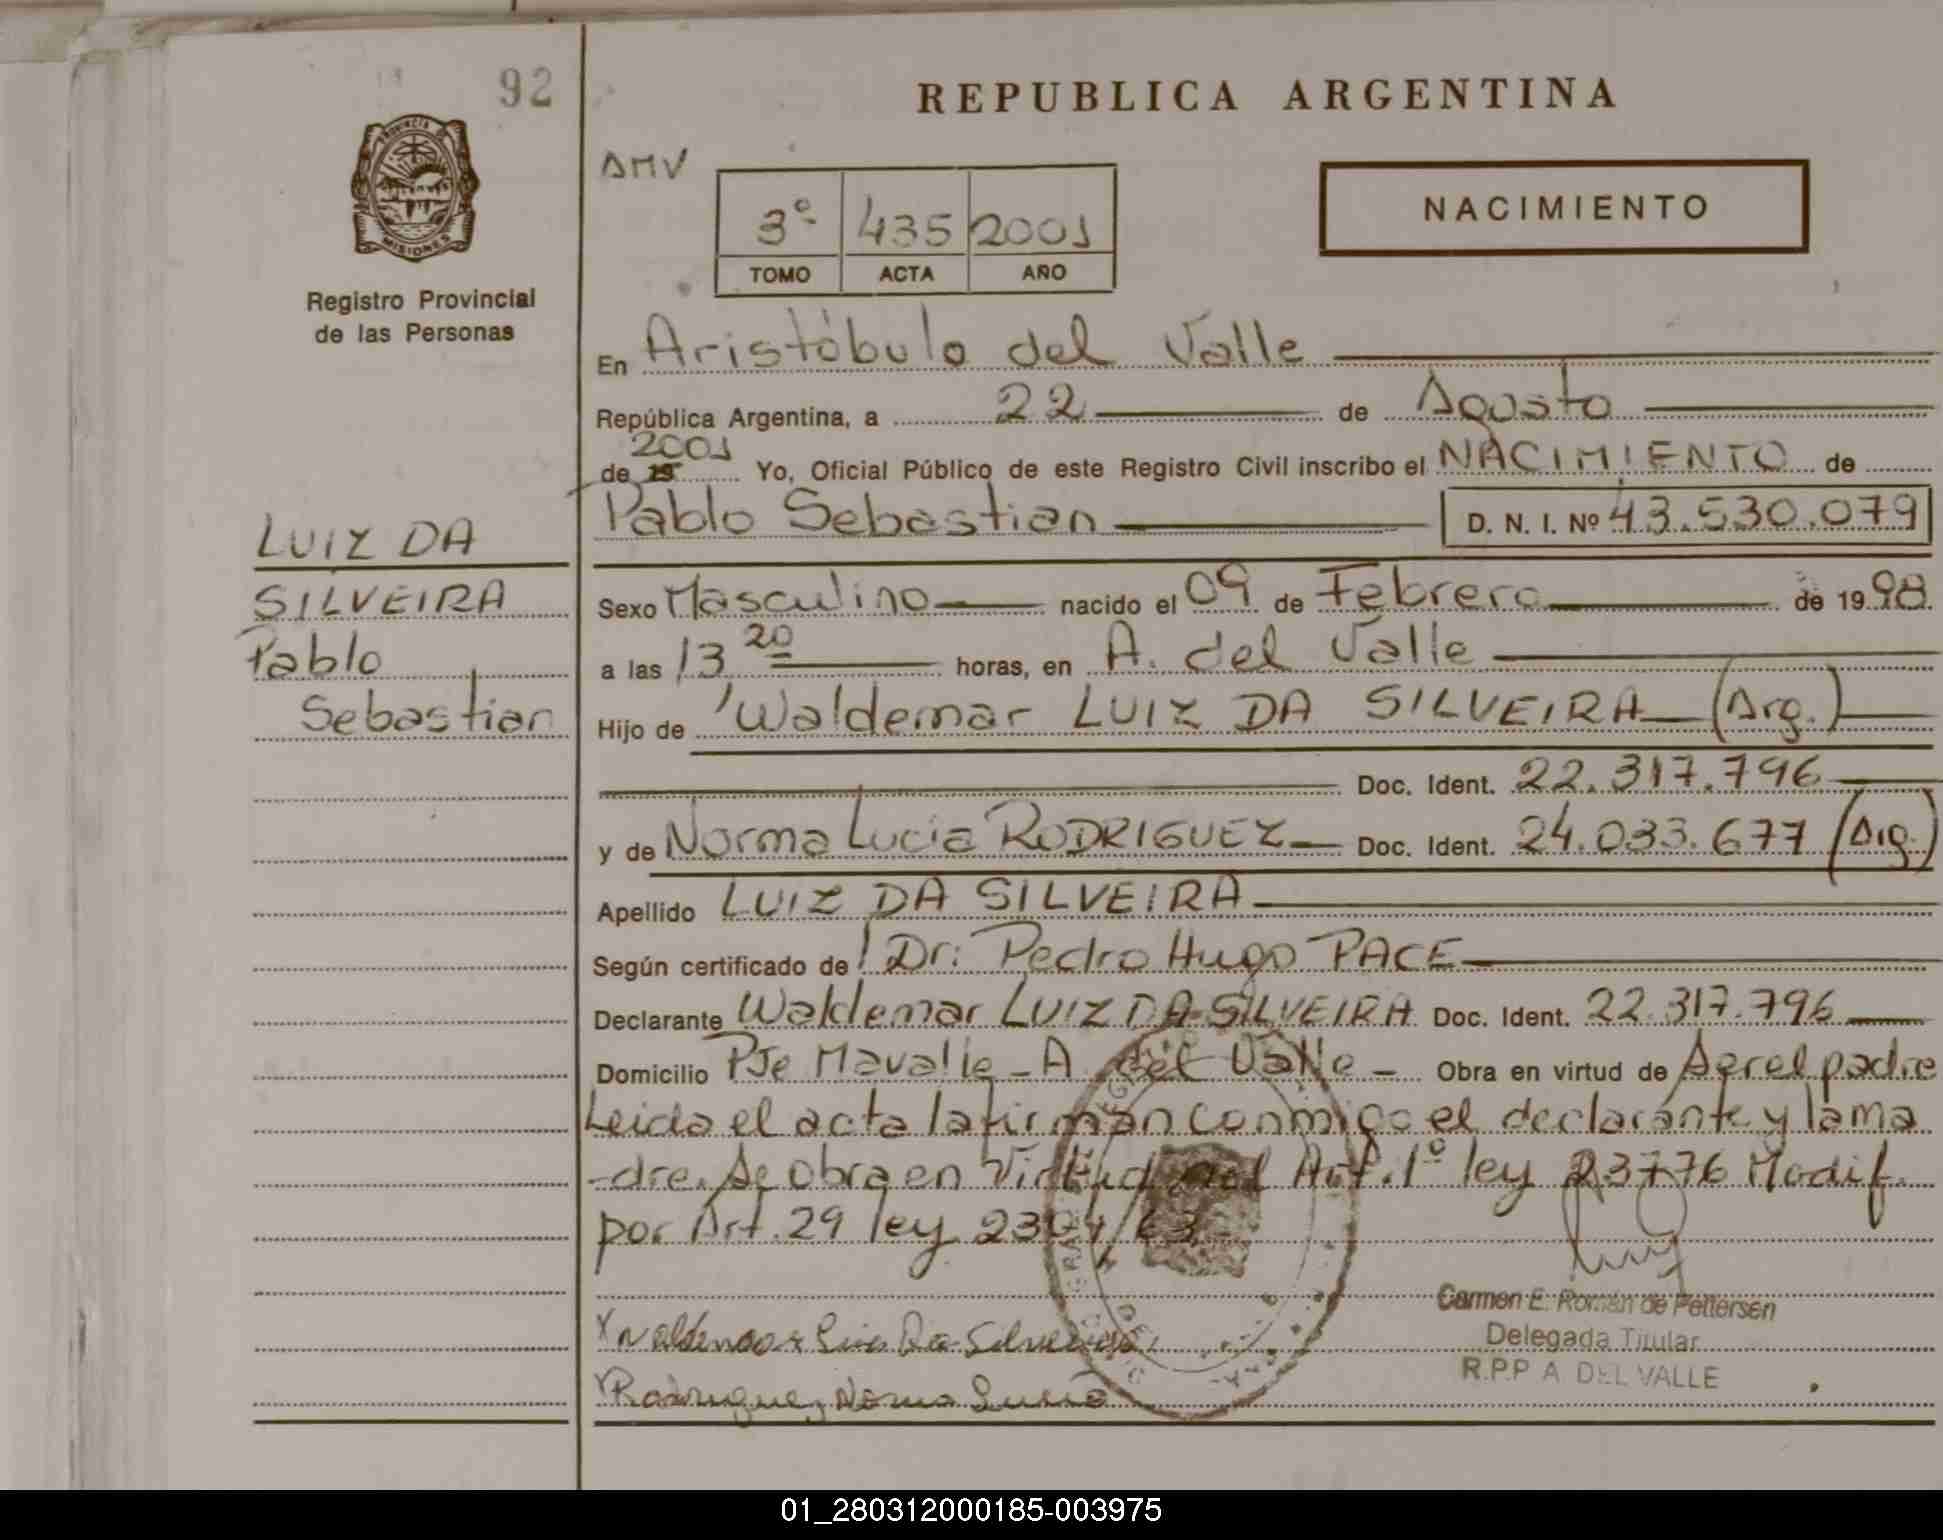 92
REPUBLICA ARGENTINA
PROVINCIA DE
MISIONES
Registro Provincial
de las Personas
AMV
3º 435 2001
TOMO ACTA AÑO
NACIMIENTO
En Aristóbulo del Valle
República Argentina, a 22 de Agosto
de 2001 Yo, Oficial Público de este Registro Civil inscribo el NACIMIENTO de
Pablo Sebastian D. N. I. Nº 43.530.079
LUIZ DA
SILVEIRA
Pablo
Sebastian
Sexo Masculino nacido el 09 de Febrero de 1998
a las 13 20 horas, en A. del Valle
Hijo de Waldemar LUIZ DA SILVEIRA (Arg.)
Doc. Ident. 22.317.796
y de Norma Lucia RODRIGUEZ Doc. Ident. 24.033.677 (Arg.)
Apellido LUIZ DA SILVEIRA
Según certificado de Dr: Pedro Hugo PACE
Declarante Waldemar LUIZ DA SILVEIRA Doc. Ident. 22.317.796
Domicilio Pje Mavalle - A. del Valle - Obra en virtud de Ser el padre
Leida el acta la firman conmigo el declarante y la ma
-dre. Se obra en Virtud del Art. 1º ley 23776 Modif.
por Art. 29 ley 2304/63
Carmen E. Román de Pettersen
Delegada Titular
R.P.P A DEL VALLE
Waldemar Luiz Da Silveira
Rodriguez Norma Lucia
01_280312000185-003975